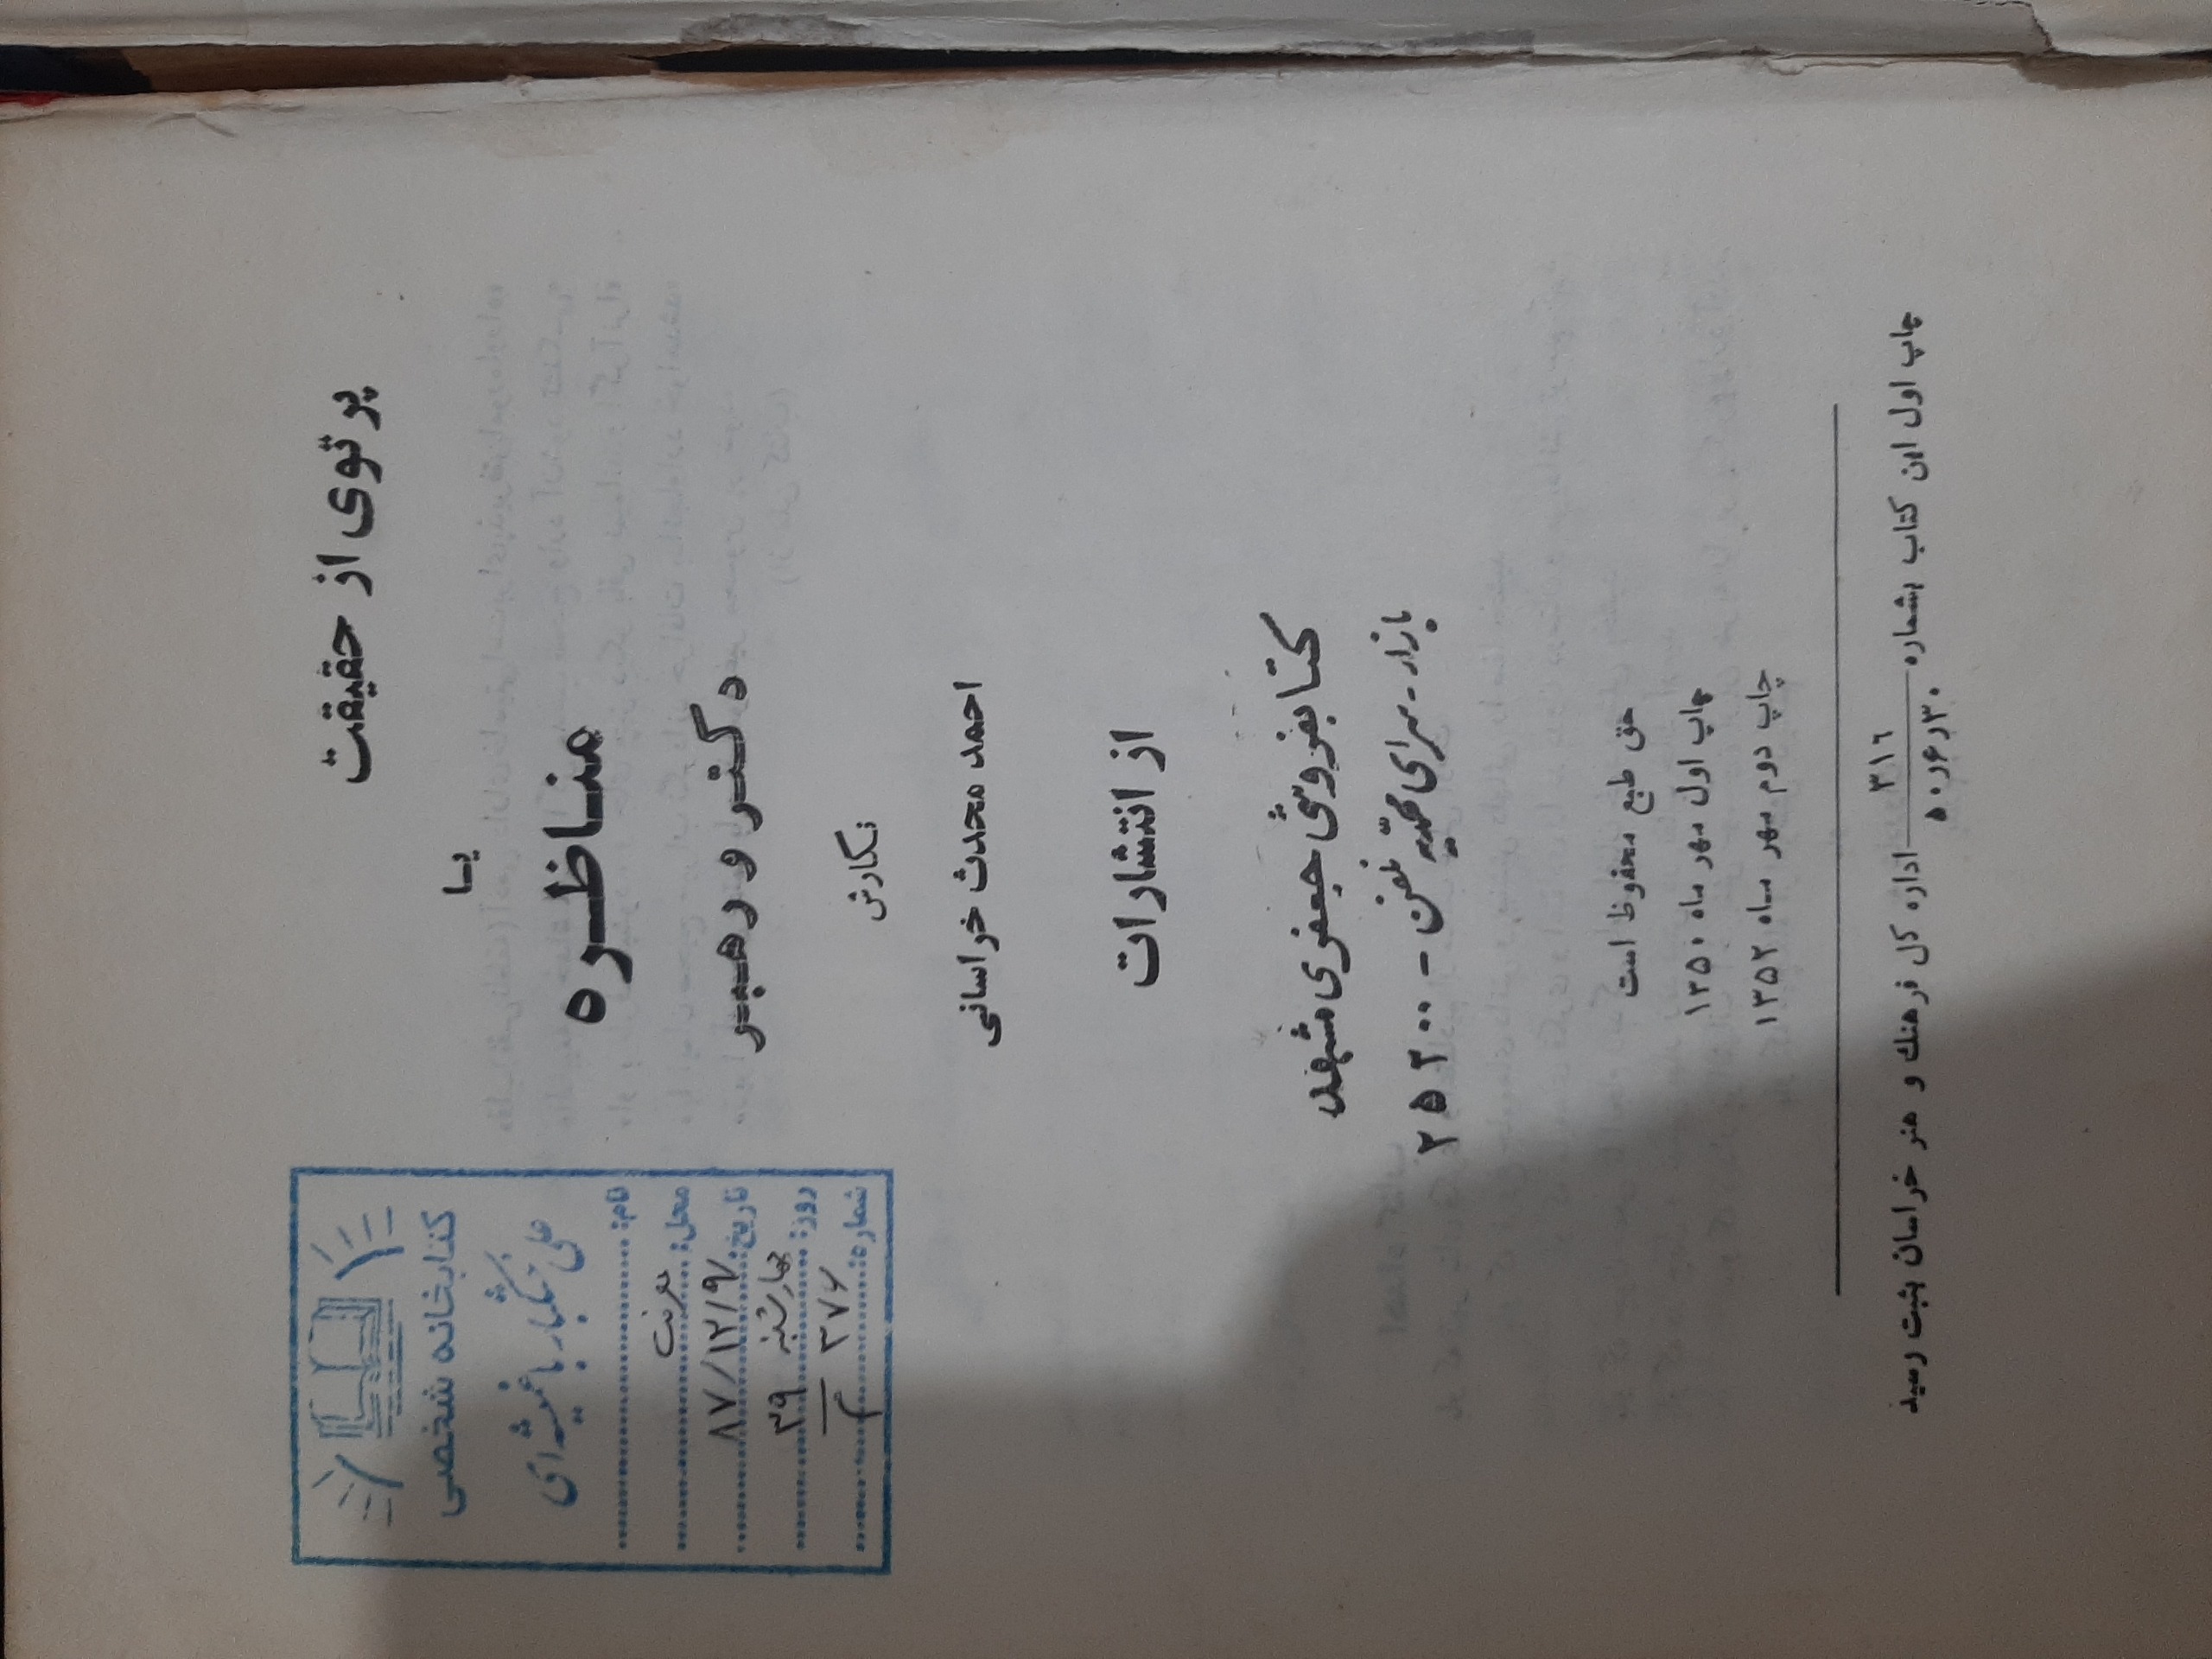 پرتوی از حقیقت
یا
مناظره
دکتر و رهبر
نگارش
احمد محدث خراسانی
از انتشارات
کتابفروشی جعفری مشهد
بازار - سرای محمدیه تلفن - ۲۵۲۰۰
حق طبع محفوظ است
چاپ اول مهر ماه ۱۳۵۰
چاپ دوم مهر ماه ۱۳۵۲
چاپ اول این کتاب بشماره ۳۱۶ / ۵۰٫۶٫۳۰ اداره کل فرهنك و هنر خراسان بثبت رسید
کتابخانه شخصی
علی
نام:
محل:
تاریخ: ۸۷/۱۲/۹
روز: چهارشنبه ۳۹
شماره: ۳۷۶
م